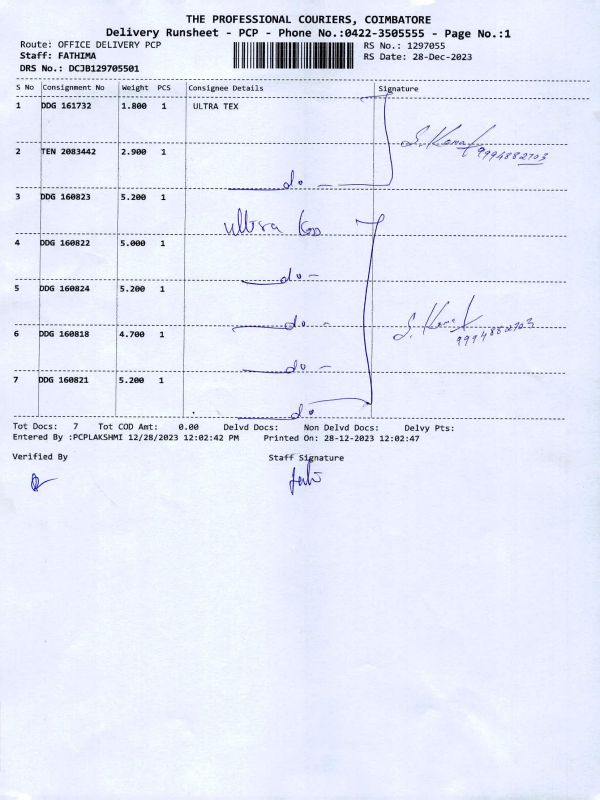 THE PROFESSIONAL COURIERS, COIMBATORE
Delivery Runsheet - PCP - Phone No.:0422-3505555 - Page No.:1
Route: OFFICE DELIVERY PCP
Staff: FATHIMA
DRS No.: DCJB129705501
RS No.: 1297055
RS Date: 28-Dec-2023
S No Consignment No Weight PCS Consignee Details Signature
1 DDG 161732 1.800 1 ULTRA TEX
2 TEN 2083442 2.900 1
do -
3 DDG 160823 5.200 1
ultra
4 DDG 160822 5.000 1
do -
5 DDG 160824 5.200 1
do -
6 DDG 160818 4.700 1
do -
7 DDG 160821 5.200 1
do
9994882703
9994882703
Tot Docs: 7 Tot COD Amt: 0.00 Delvd Docs: Non Delvd Docs: Delvy Pts:
Entered By :PCPLAKSHMI 12/28/2023 12:02:42 PM Printed On: 28-12-2023 12:02:47
Verified By Staff Signature